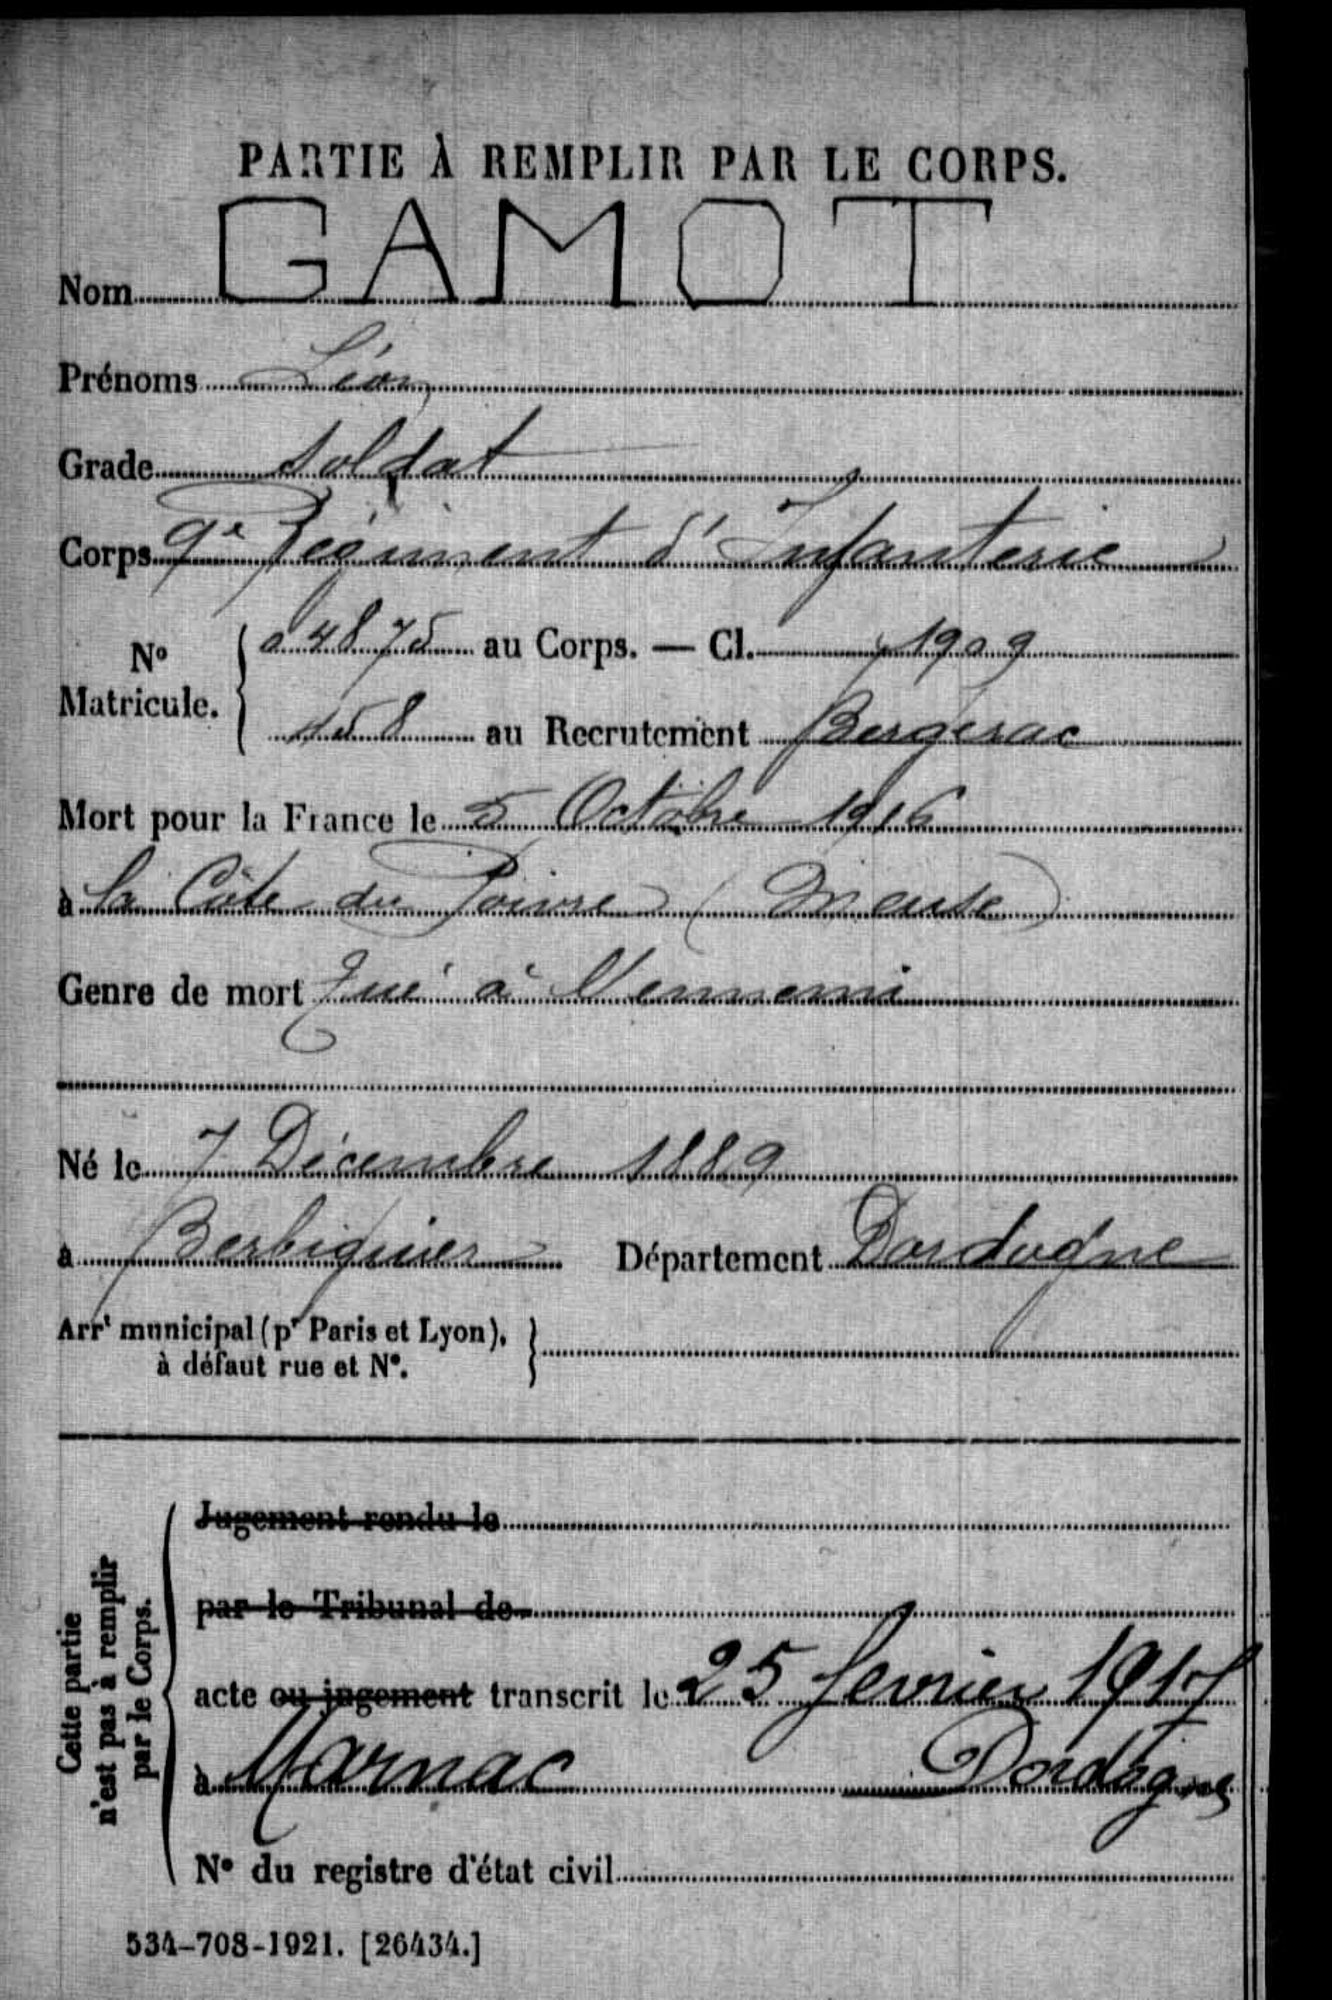 PARTIE À REMPLIR PAR LE CORPS.
Nom GAMOT
Prénoms Léon
Grade Soldat
Corps 9e Régiment d'Infanterie
No Matricule. { 04875 au Corps. — Cl. 1909
158 au Recrutement Bergerac
Mort pour la France le 5 Octobre 1916
à la Côte du Poivre (Meuse)
Genre de mort Tué à l'ennemi
Né le 7 Décembre 1889
à Berbiguier Département Dordogne
Arrt municipal (pr Paris et Lyon), à défaut rue et No. }
Cette partie n'est pas à remplir par le Corps.
Jugement rendu le
par le Tribunal de
acte ou jugement transcrit le 25 fevrier 1917
à Marnac Dordogne
No du registre d'état civil
534-708-1921. [26434.]